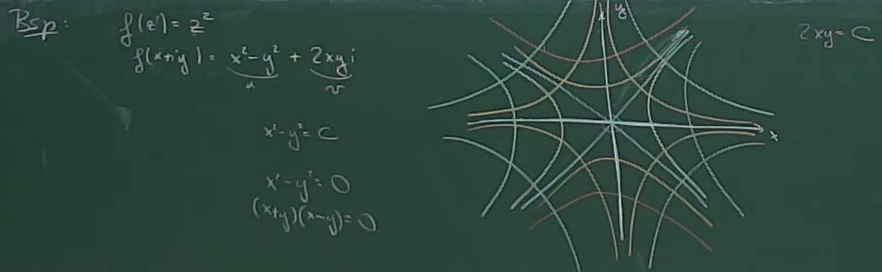 Bsp: f(z) = z²
f(x+iy) = x²-y² + 2xyi
u v
x²-y² = C
x²-y² = 0
(x+y)(x-y) = 0
y
x
2xy = C